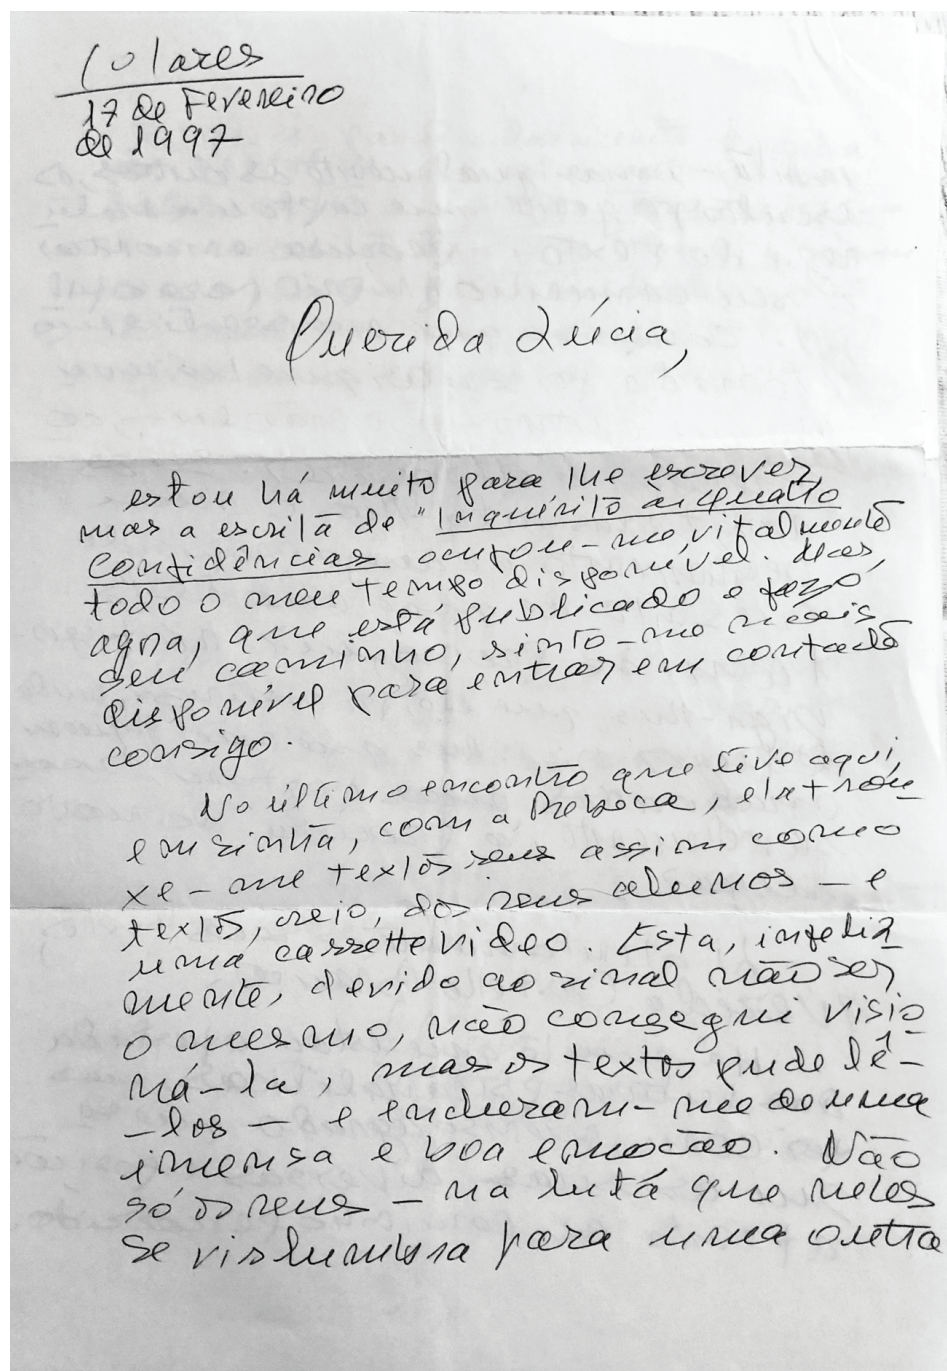 Colares
17 de Fevereiro
de 1997
Querida Lúcia,
estou há muito para lhe escrever,
mas a escrita de "Inquérito às Quatro
Confidências ocupou-me, vitalmente
todo o meu tempo disponível. Mas,
agora, que está publicado e faz o
seu caminho, sinto-me mais
disponível para entrar em contacto
consigo.
No último encontro que tive aqui,
em Sintra, com a , ela trou-
xe-me textos seus assim como
textos, creio, dos seus alunos — e
uma cassette video. Esta, infeliz
mente, devido ao sinal não ser
o mesmo, não consegui visio
ná-la, mas os textos pude lê-
-los — e encheram-me de uma
imensa e boa emoção. Não
só os seus — na luta que neles
se vislumbra para uma outra